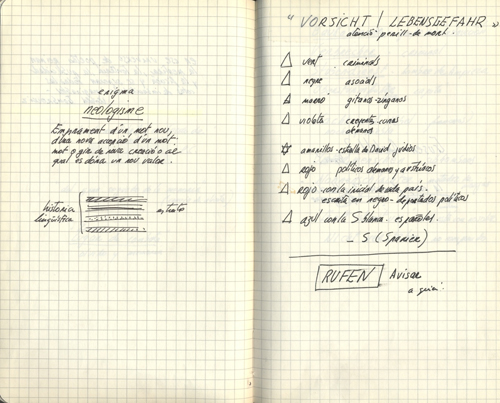 enigma
neologisme
Emprament d'un mot nou,
d'una nova accepció d'un mot
mot o gir de nova creació o al
qual es dóna un nou valor.
història
lingüística
estrats
"VORSICHT / LEBENSGEFAHR"
atenció perill de mort.
vert criminals
negre asocials
marró gitanos-zíngaros
violeta creyentes-curas
amarillos-estrella de David judíos
rojo políticos alemanes y austríacos
rojo con la inicial de cada país
escrita en negro-deportados políticos
azul con la S blanca-españoles.
S (Spanier)
RUFEN Avisar
a